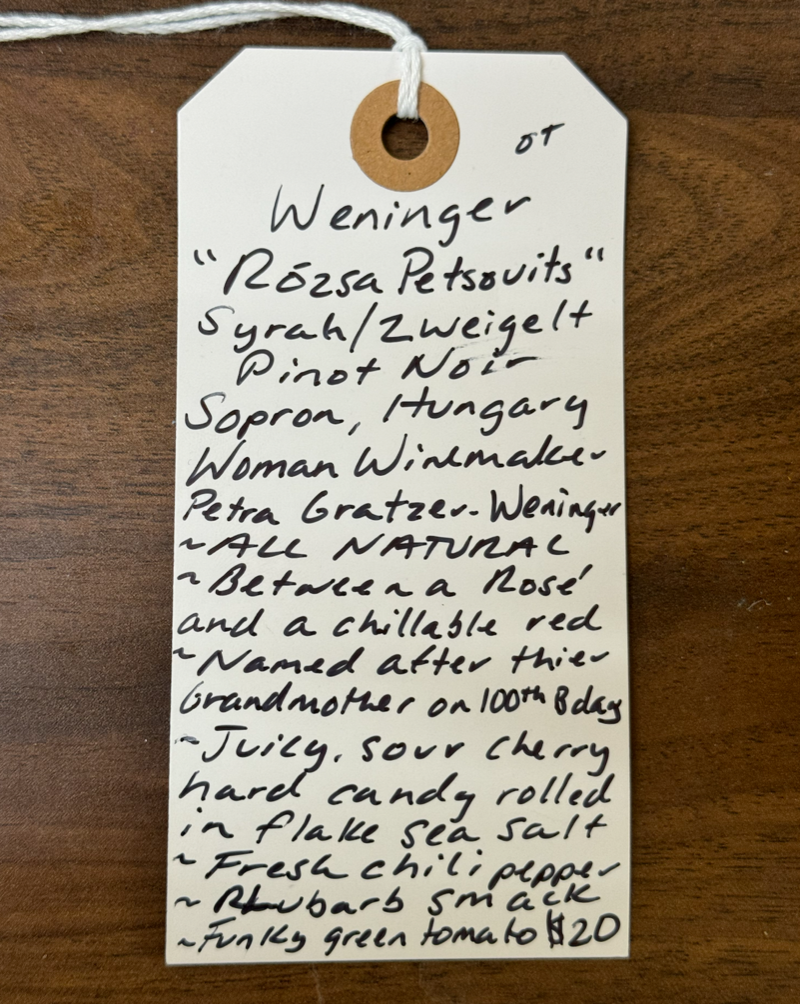 OT
Weninger
"Rózsa Petsovits"
Syrah/Zweigelt
Pinot Noir
Sopron, Hungary
Woman Winemaker
Petra Gratzer-Weninger
~ALL NATURAL
~Between a Rosé
and a chillable red
~Named after thier
Grandmother on 100th Bday
~Juicy, sour cherry
hard candy rolled
in flake sea salt
~Fresh chili pepper
~Rhubarb smack
~Funky green tomato $20